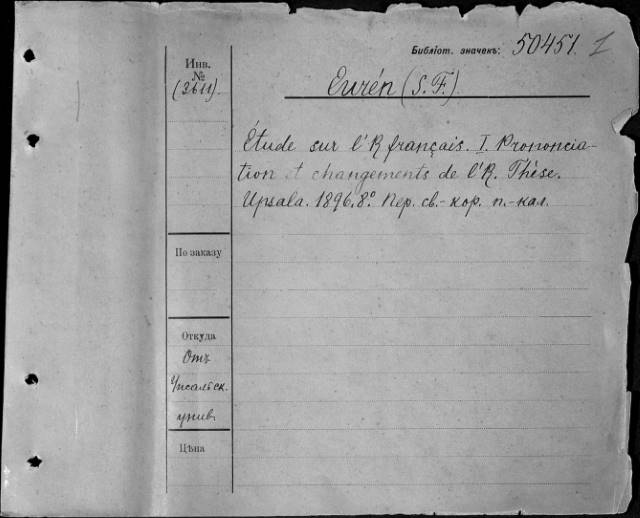 Библіот. значекъ: 50451. 1
Инв.
№
(3611)
Eurén (S. F.)
Étude sur l'R français. I. Prononcia-
tion et changements de l'R. Thèse.
Upsala. 1896. 8º. Пер. св.-кор. п.-кал.
По заказу
Откуда
Отъ
Упсальск.
унив.
Цѣна